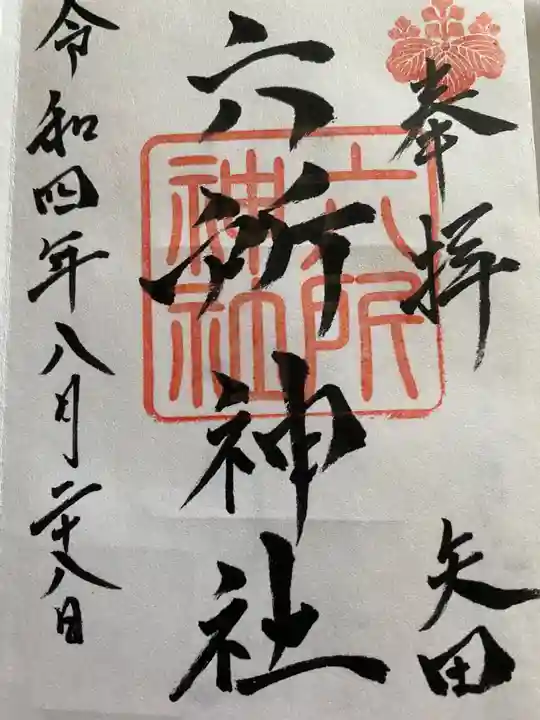 奉拝
矢田
六所神社
六所
神社
令和四年八月二十八日